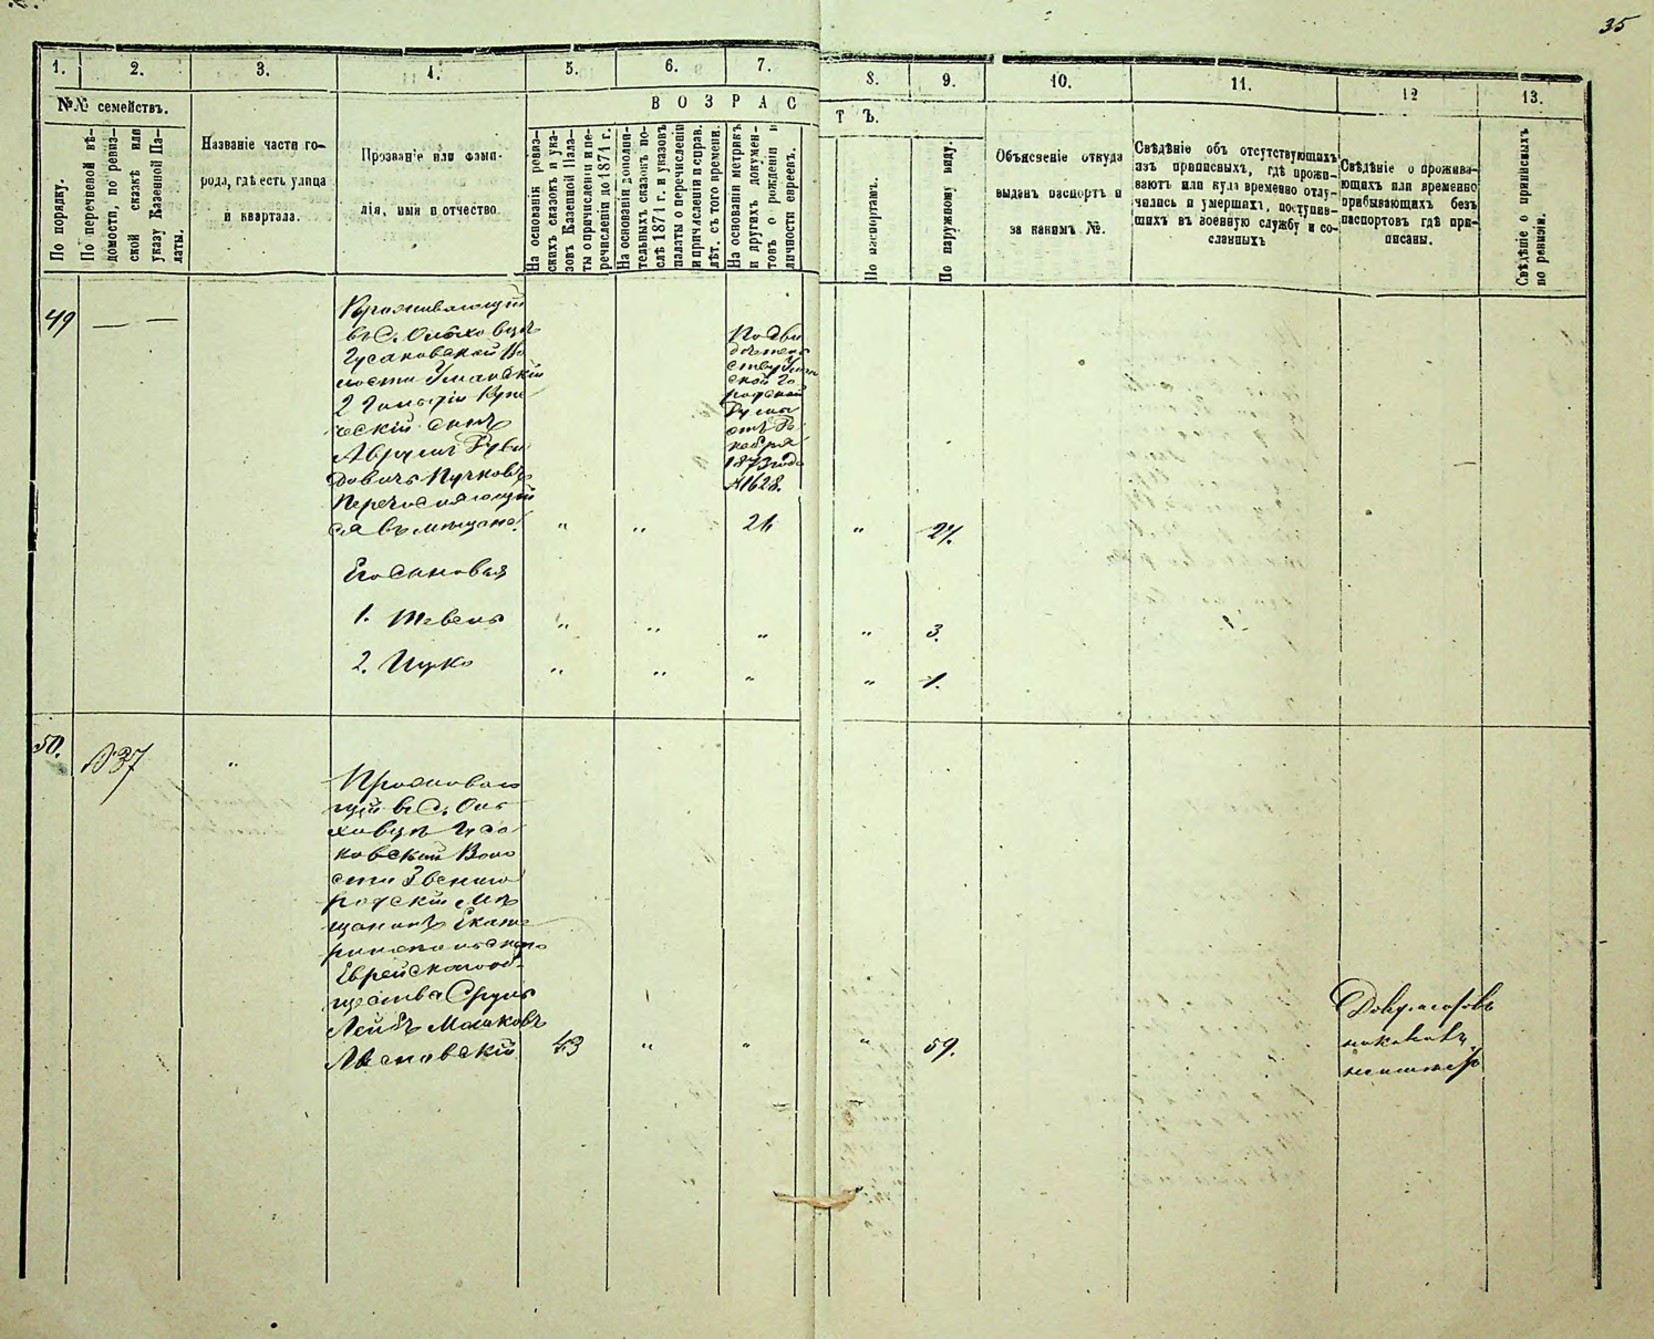 35
1. 2. 3. 4. 5. 6. 7. 8. 9. 10. 11. 12 13.
№№ семействъ.
По порядку.
По перечневой вѣ-
домости, по ревиз-
ской сказкѣ или
указу Казенной Па-
латы.
Названіе части го-
рода, гдѣ есть улица
и квартала.
Прозваніе или фами-
лія, имя и отчество
ВОЗРАСТЪ.
На основаніи ревиз-
скихъ сказокъ и ука-
зовъ Казенной Пала-
ты о причисленіи и пе-
речисленіи до 1871 г.
На основаніи дополни-
тельныхъ сказокъ по-
слѣ 1871 г. и указовъ
палаты о перечисленіи
и причисленіи и справ.
лѣт. съ того времени.
На основаніи метрикъ
и другихъ докумен-
товъ о рожденіи и
личности евреевъ.
По паспортамъ.
По наружному виду.
Объясненіе откуда
выданъ паспортъ и
за какимъ №.
Свѣдѣніе объ отсутствующихъ
изъ приписныхъ, гдѣ прожи-
ваютъ или куда временно отлу-
чились и умершихъ, поступив-
шихъ въ военную службу и со-
сланныхъ
Свѣдѣніе о прожива-
ющихъ или временно
прибывающихъ безъ
паспортовъ гдѣ при-
писаны.
Свѣдѣніе о приписныхъ
по ревизіи.
49 — —
Проживающій
въ С. Ольховцѣ
Гусаковской Во
лости Уманскій
2 Гильдіи Купе
ческій сынъ
Аврумъ Руви
довичъ Пучковъ
Перечисляющій
ся въ мещане.
По сви
детель
ству Уман
ской Го
родской
Думы
отъ
Декабря
1873 года
№1628.
" " 21 " 21.
Его сыновья
1. Шевель " " " " 3.
2. Ицко " " " " 1.
50. №37 "
Проживаю
щій в С. Оль
ховцѣ Гуса
ковской Воло
сти Звениго
родскій Мѣ
щанинъ Екате
ринопольскаго
Еврейскаго об-
щества Сруль
Лейбъ Мошковъ
Лясновскій 43 " " " 59.